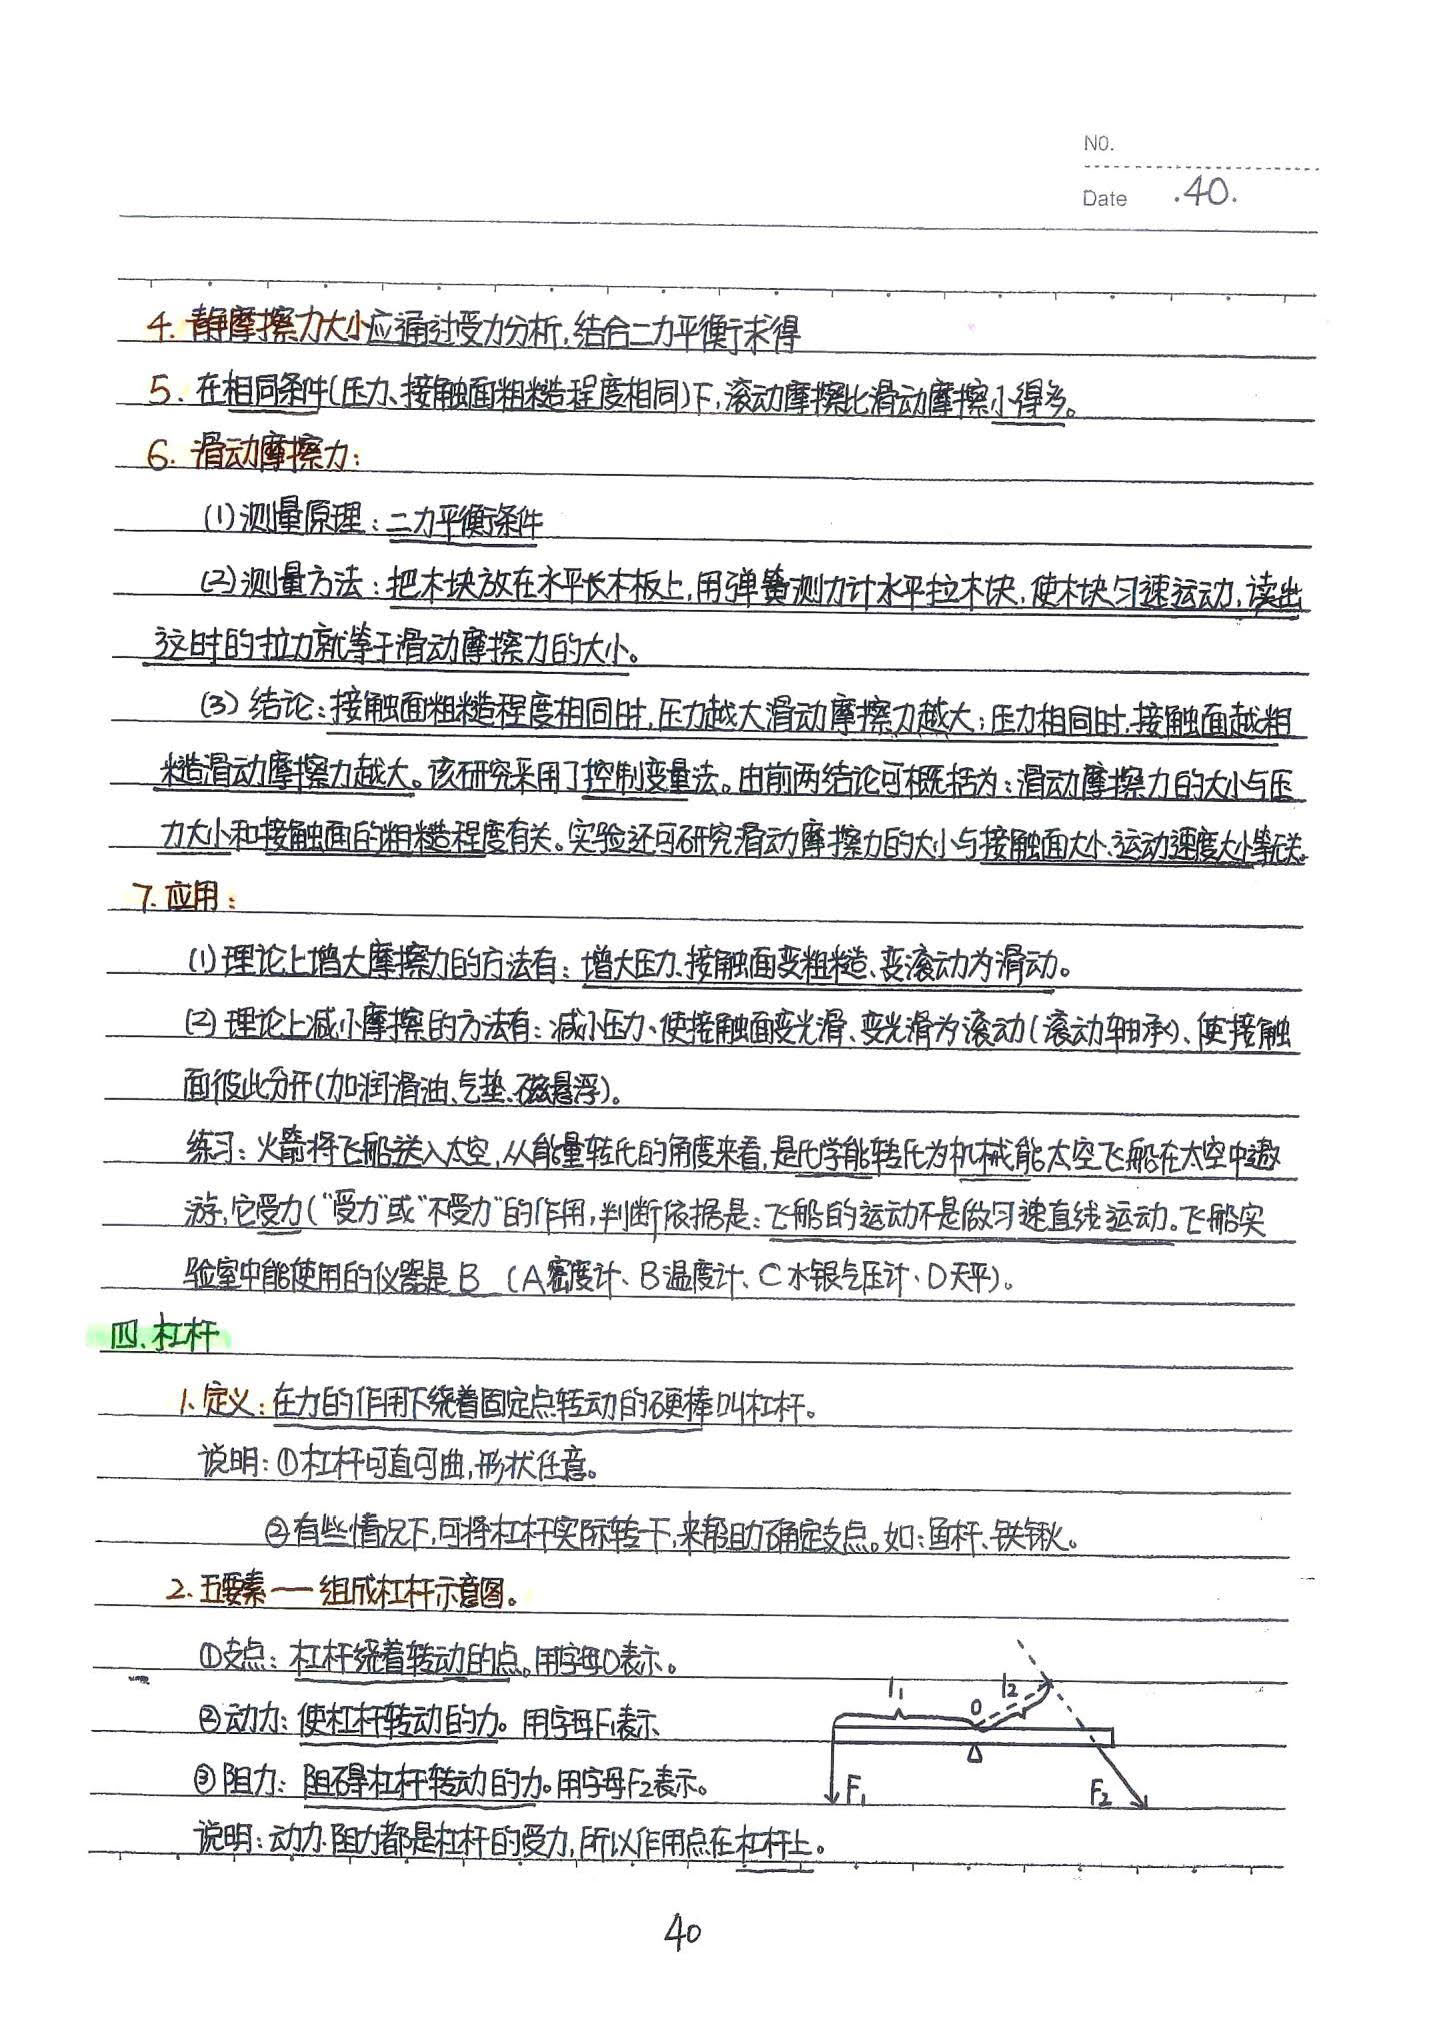 NO.
Date .40.
4. 静摩擦力大小应通过受力分析,结合二力平衡求得
5. 在相同条件(压力、接触面粗糙程度相同)下,滚动摩擦比滑动摩擦小得多。
6. 滑动摩擦力:
(1)测量原理:二力平衡条件
(2)测量方法:把木块放在水平长木板上,用弹簧测力计水平拉木块,使木块匀速运动,读出
这时的拉力就等于滑动摩擦力的大小。
(3)结论:接触面粗糙程度相同时,压力越大滑动摩擦力越大;压力相同时,接触面越粗
糙滑动摩擦力越大。该研究采用了控制变量法。由前两结论可概括为:滑动摩擦力的大小与压
力大小和接触面的粗糙程度有关。实验还可研究滑动摩擦力的大小与接触面大小、运动速度大小等无关。
7. 应用:
(1)理论上增大摩擦力的方法有:增大压力、接触面变粗糙、变滚动为滑动。
(2)理论上减小摩擦的方法有:减小压力、使接触面变光滑、变光滑为滚动(滚动轴承)、使接触
面彼此分开(加润滑油、气垫、磁悬浮)。
练习:火箭将飞船送入太空,从能量转化的角度来看,是化学能转化为机械能太空飞船在太空中遨
游,它受力("受力"或"不受力"的作用,判断依据是:飞船的运动不是做匀速直线运动。飞船实
验室中能使用的仪器是 B (A密度计、B温度计、C水银气压计、D天平)。
四、杠杆
1、定义:在力的作用下绕着固定点转动的硬棒叫杠杆。
说明:①杠杆可直可曲,形状任意。
②有些情况下,可将杠杆实际转一下,来帮助确定支点。如:鱼杆、铁锹。
2. 五要素——组成杠杆示意图。
①支点:杠杆绕着转动的点。用字母O表示。
②动力:使杠杆转动的力。用字母F1表示
③阻力:阻碍杠杆转动的力。用字母F2表示。
说明:动力、阻力都是杠杆的受力,所以作用点在杠杆上。
l1 O l2
F1 F2
40